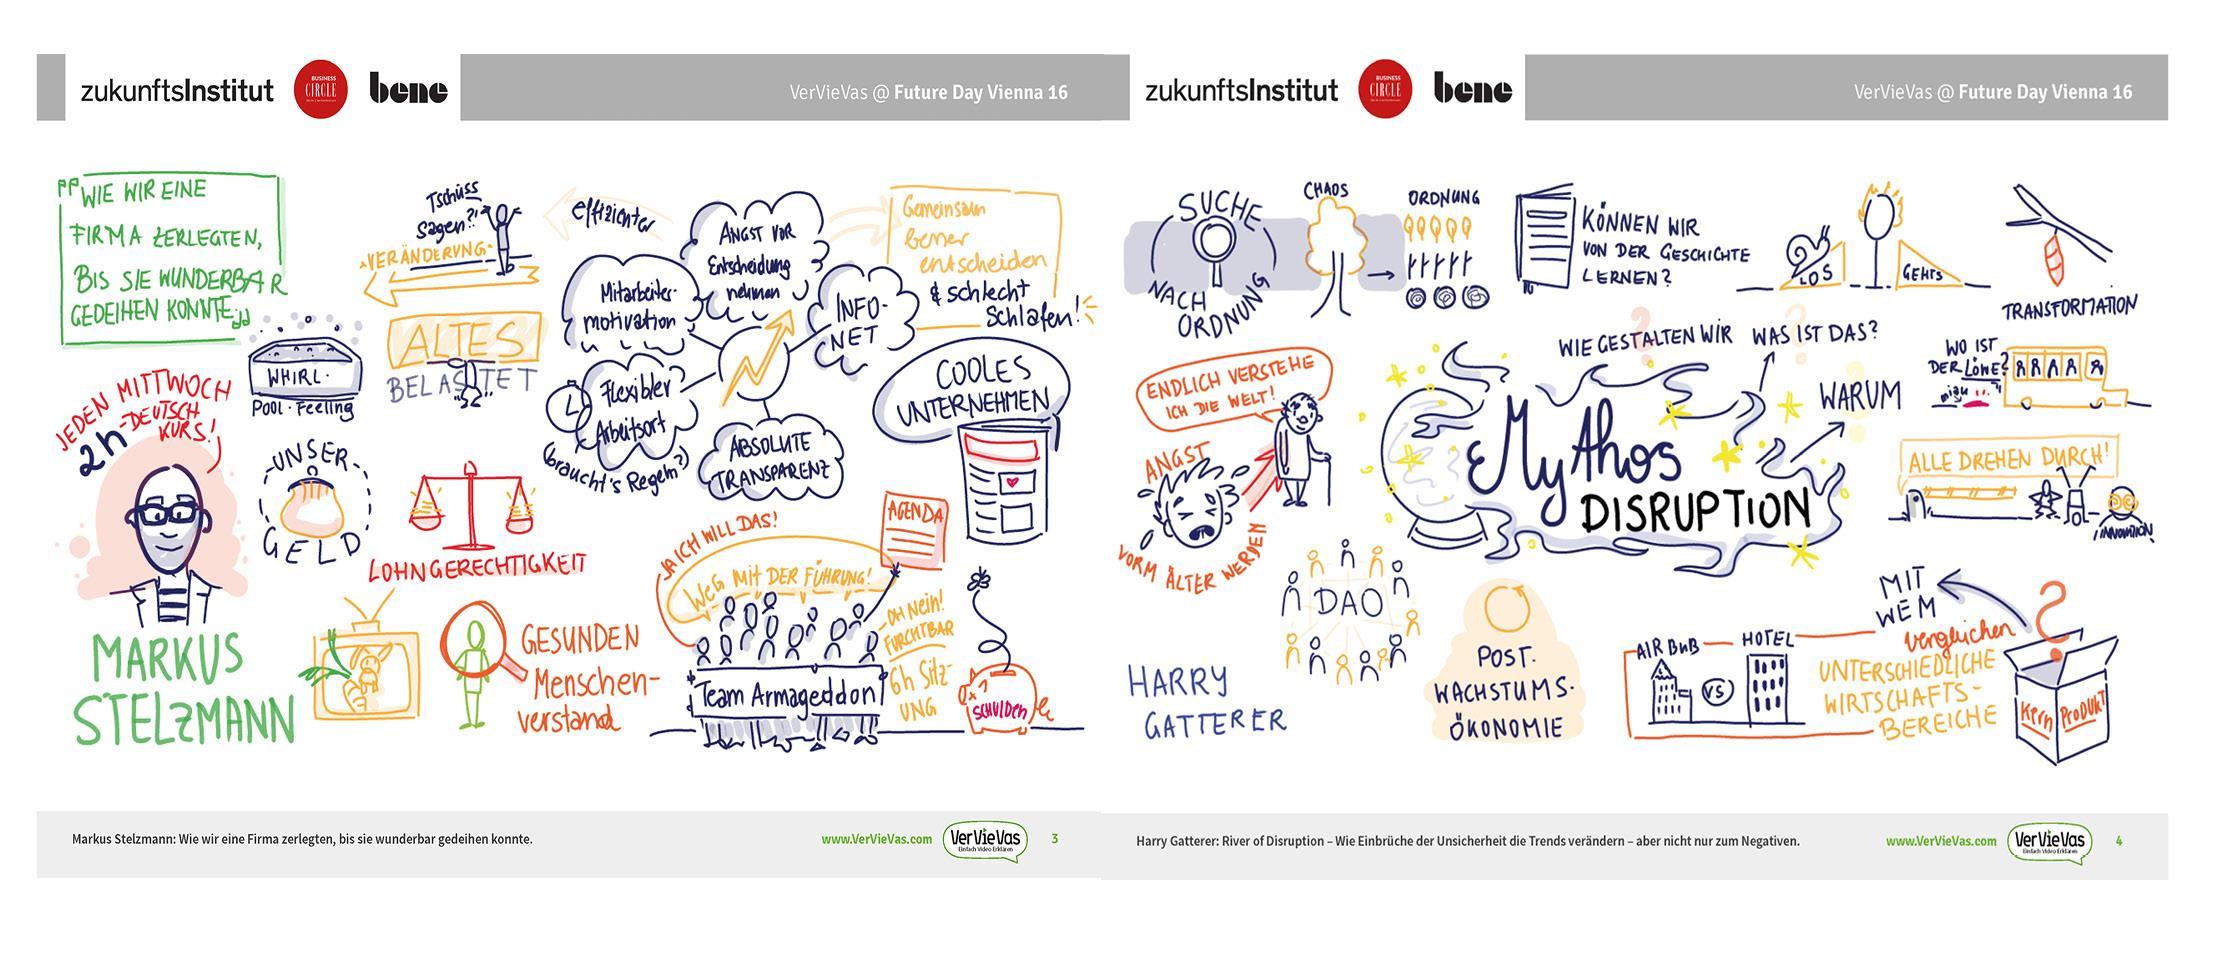 zukunftsInstitut
BUSINESS
CIRCLE
bene
VerVieVas @ Future Day Vienna 16
WIE WIR EINE
FIRMA ZERLEGTEN,
BIS SIE WUNDERBAR
GEDEIHEN KONNTE
Tschüss
Sagen?!
VERÄNDERUNG
ALTES
BELASTET
WHIRL-
POOL-Feeling
JEDEN MITTWOCH
2h-DEUTSCH
KURS!
UNSER
GELD
LOHNGERECHTIGKEIT
MARKUS
STELZMANN
GESUNDEN
Menschen-
verstand
effizienter
ANGST VOR
Entscheidung
nehmen
Mitarbeiter-
motivation
INFO-
NET
Flexibler
Arbeitsort
(braucht's Regeln?)
ABSOLUTE
TRANSPARENZ
Gemeinsam
besser
entscheiden
& schlecht
Schlafen!
COOLES
UNTERNEHMEN
AGENDA
JA ICH WILL DAS!
WEG MIT DER FÜHRUNG!
Team Armageddon
OH Nein!
FURCHTBAR
6h SITZ-
UNG
SCHULDEN
Markus Stelzmann: Wie wir eine Firma zerlegten, bis sie wunderbar gedeihen konnte.
www.VerVieVas.com
VerVieVas
Einfach Video Erklären
3
zukunftsInstitut
BUSINESS
CIRCLE
bene
VerVieVas @ Future Day Vienna 16
SUCHE
NACH
ORDNUNG
CHAOS
ORDNUNG
KÖNNEN WIR
VON DER GESCHICHTE
LERNEN?
LOS
GEHTS
TRANSFORMATION
ENDLICH VERSTEHE
ICH DIE WELT!
ANGST
VORM ÄLTER WERDEN
WIE GESTALTEN WIR
WAS IST DAS?
WARUM
Mythos
DISRUPTION
WO IST
DER LÖWE?
miau
ALLE DREHEN DURCH!
INNOVATION
DAO
HARRY
GATTERER
POST-
WACHSTUMS-
ÖKONOMIE
AIR BnB
VS
HOTEL
MIT
WEM
vergleichen
UNTERSCHIEDLICHE
WIRTSCHAFTS-
BEREICHE
Kern
PRODUKT
Harry Gatterer: River of Disruption – Wie Einbrüche der Unsicherheit die Trends verändern – aber nicht nur zum Negativen.
www.VerVieVas.com
VerVieVas
Einfach Video Erklären
4